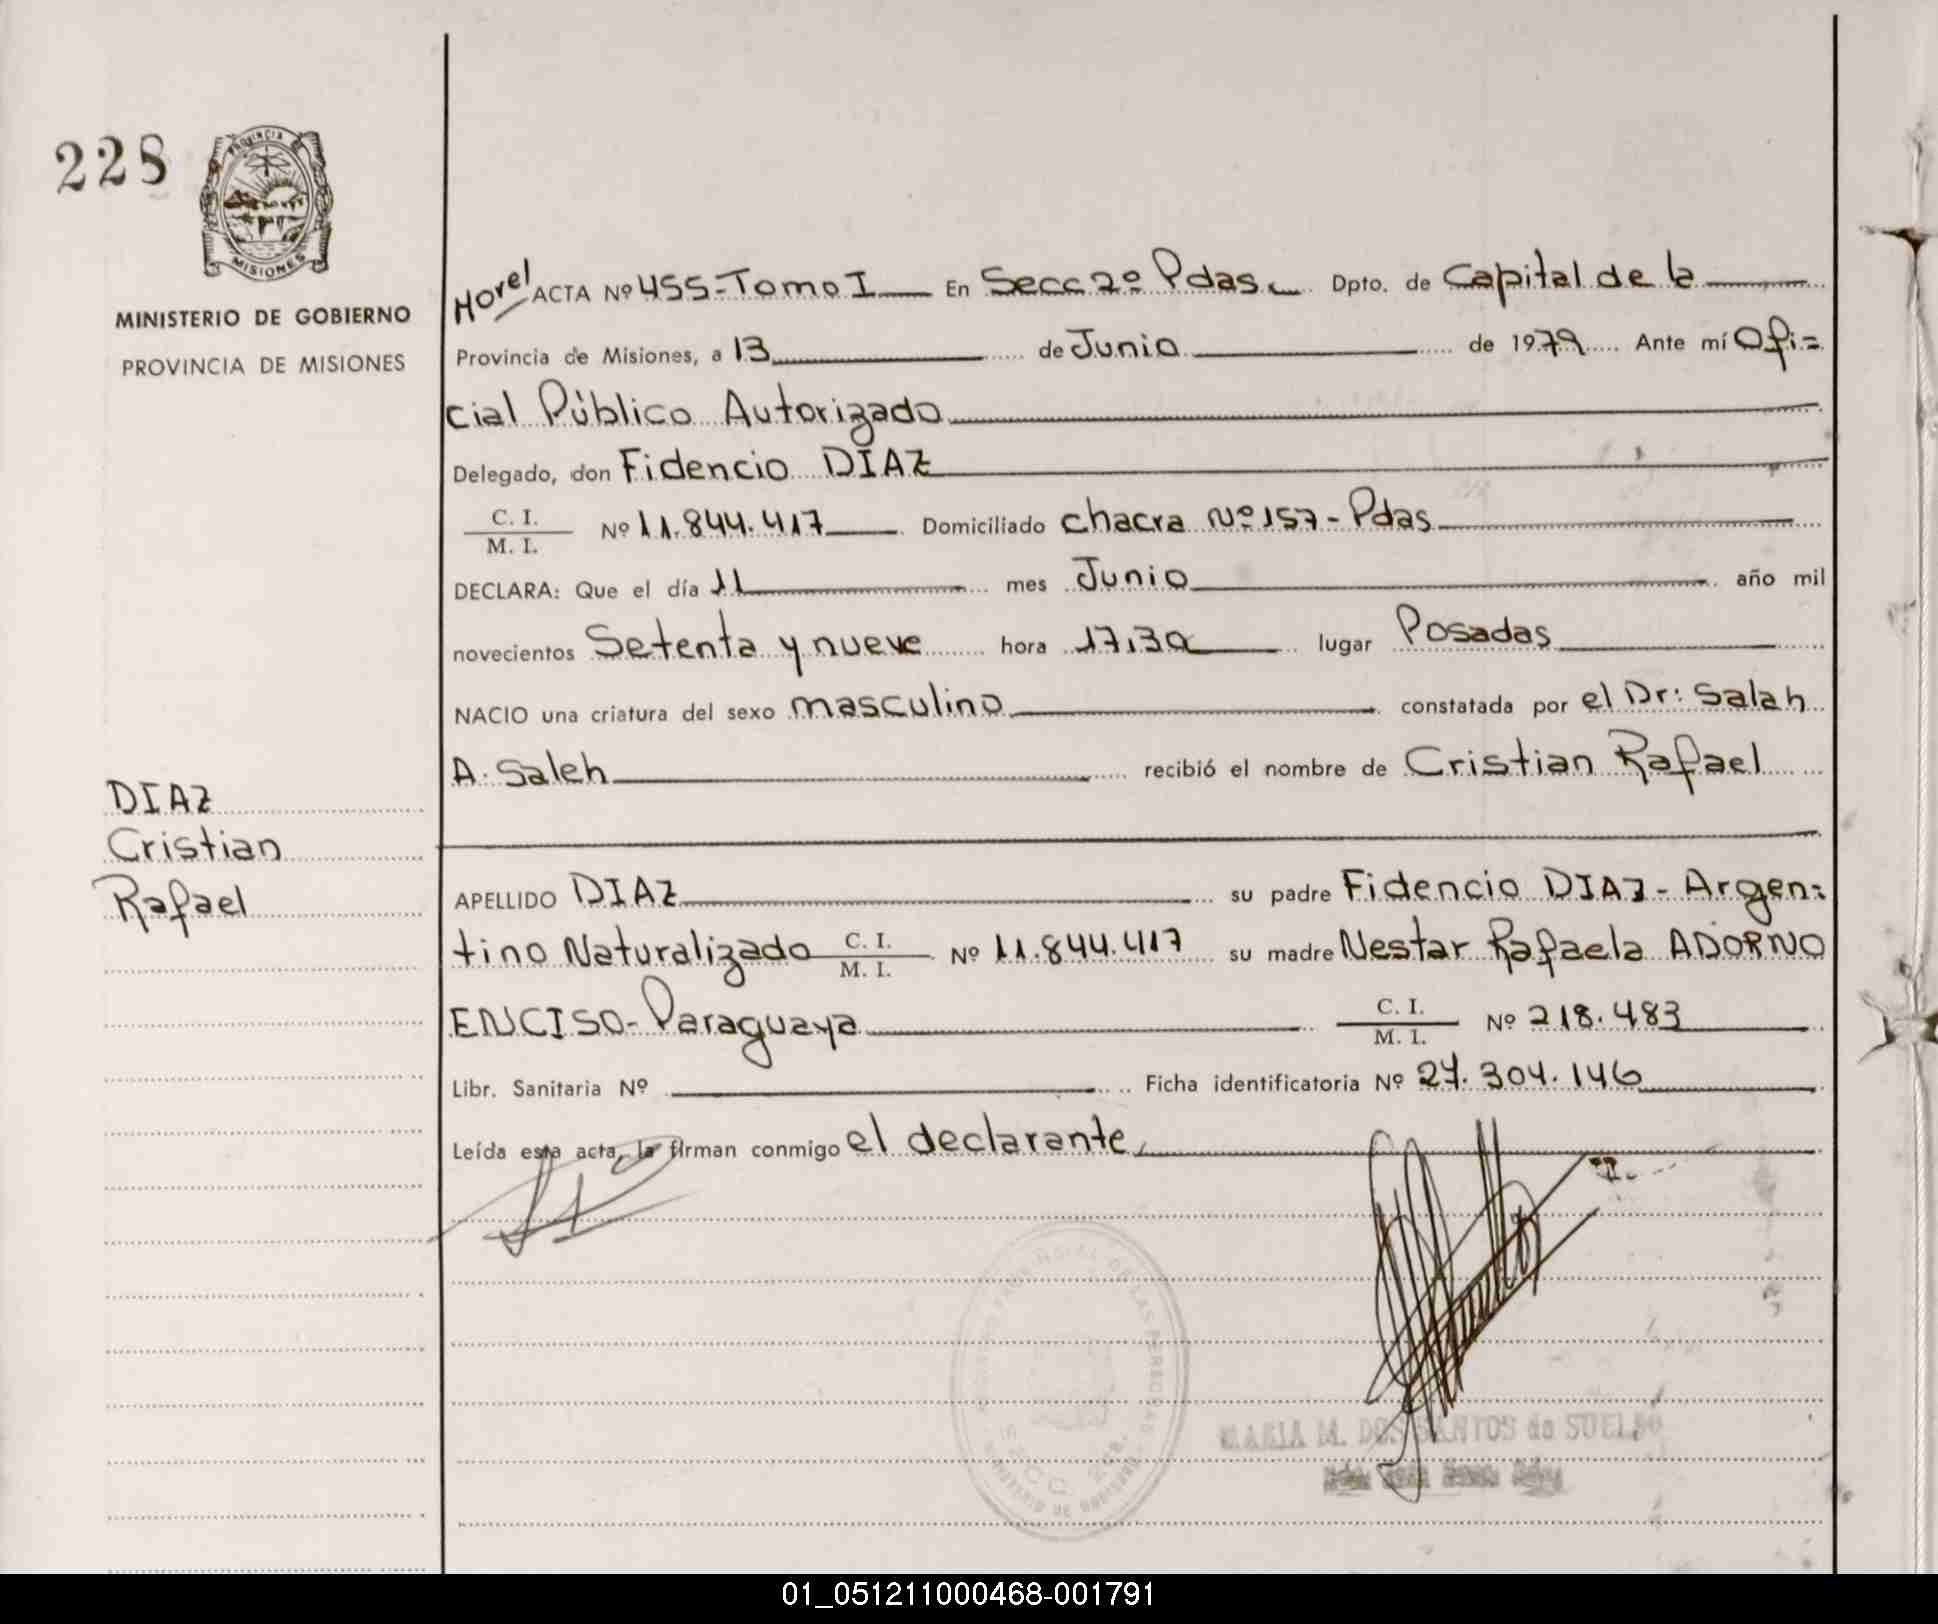 228
PROVINCIA
MISIONES
MINISTERIO DE GOBIERNO
PROVINCIA DE MISIONES
DIAZ
Cristian
Rafael
ACTA Nº 455-Tomo I En Secc 2º Pdas. Dpto. de Capital de la
Provincia de Misiones, a 13 de Junio de 1979 Ante mí Ofi=
cial Público Autorizado
Delegado, don Fidencio DIAZ
C. I.
M. I. Nº 11.844.417 Domiciliado chacra Nº 157 - Pdas
DECLARA: Que el día 11 mes Junio año mil
novecientos Setenta y nueve hora 17,30 lugar Posadas
NACIO una criatura del sexo masculino constatada por el Dr: Salah
A. Saleh recibió el nombre de Cristian Rafael
APELLIDO DIAZ su padre Fidencio DIAZ - Argen=
tino Naturalizado C. I.
M. I. Nº 11.844.417 su madre Nestar Rafaela ADORNO
ENCISO - Paraguaya C. I.
M. I. Nº 218.483
Libr. Sanitaria Nº Ficha identificatoria Nº 27.304.146
Leída esta acta, la firman conmigo el declarante,
SECC. 2da.
MARIA M. DOS SANTOS de SUELDO
01_051211000468-001791